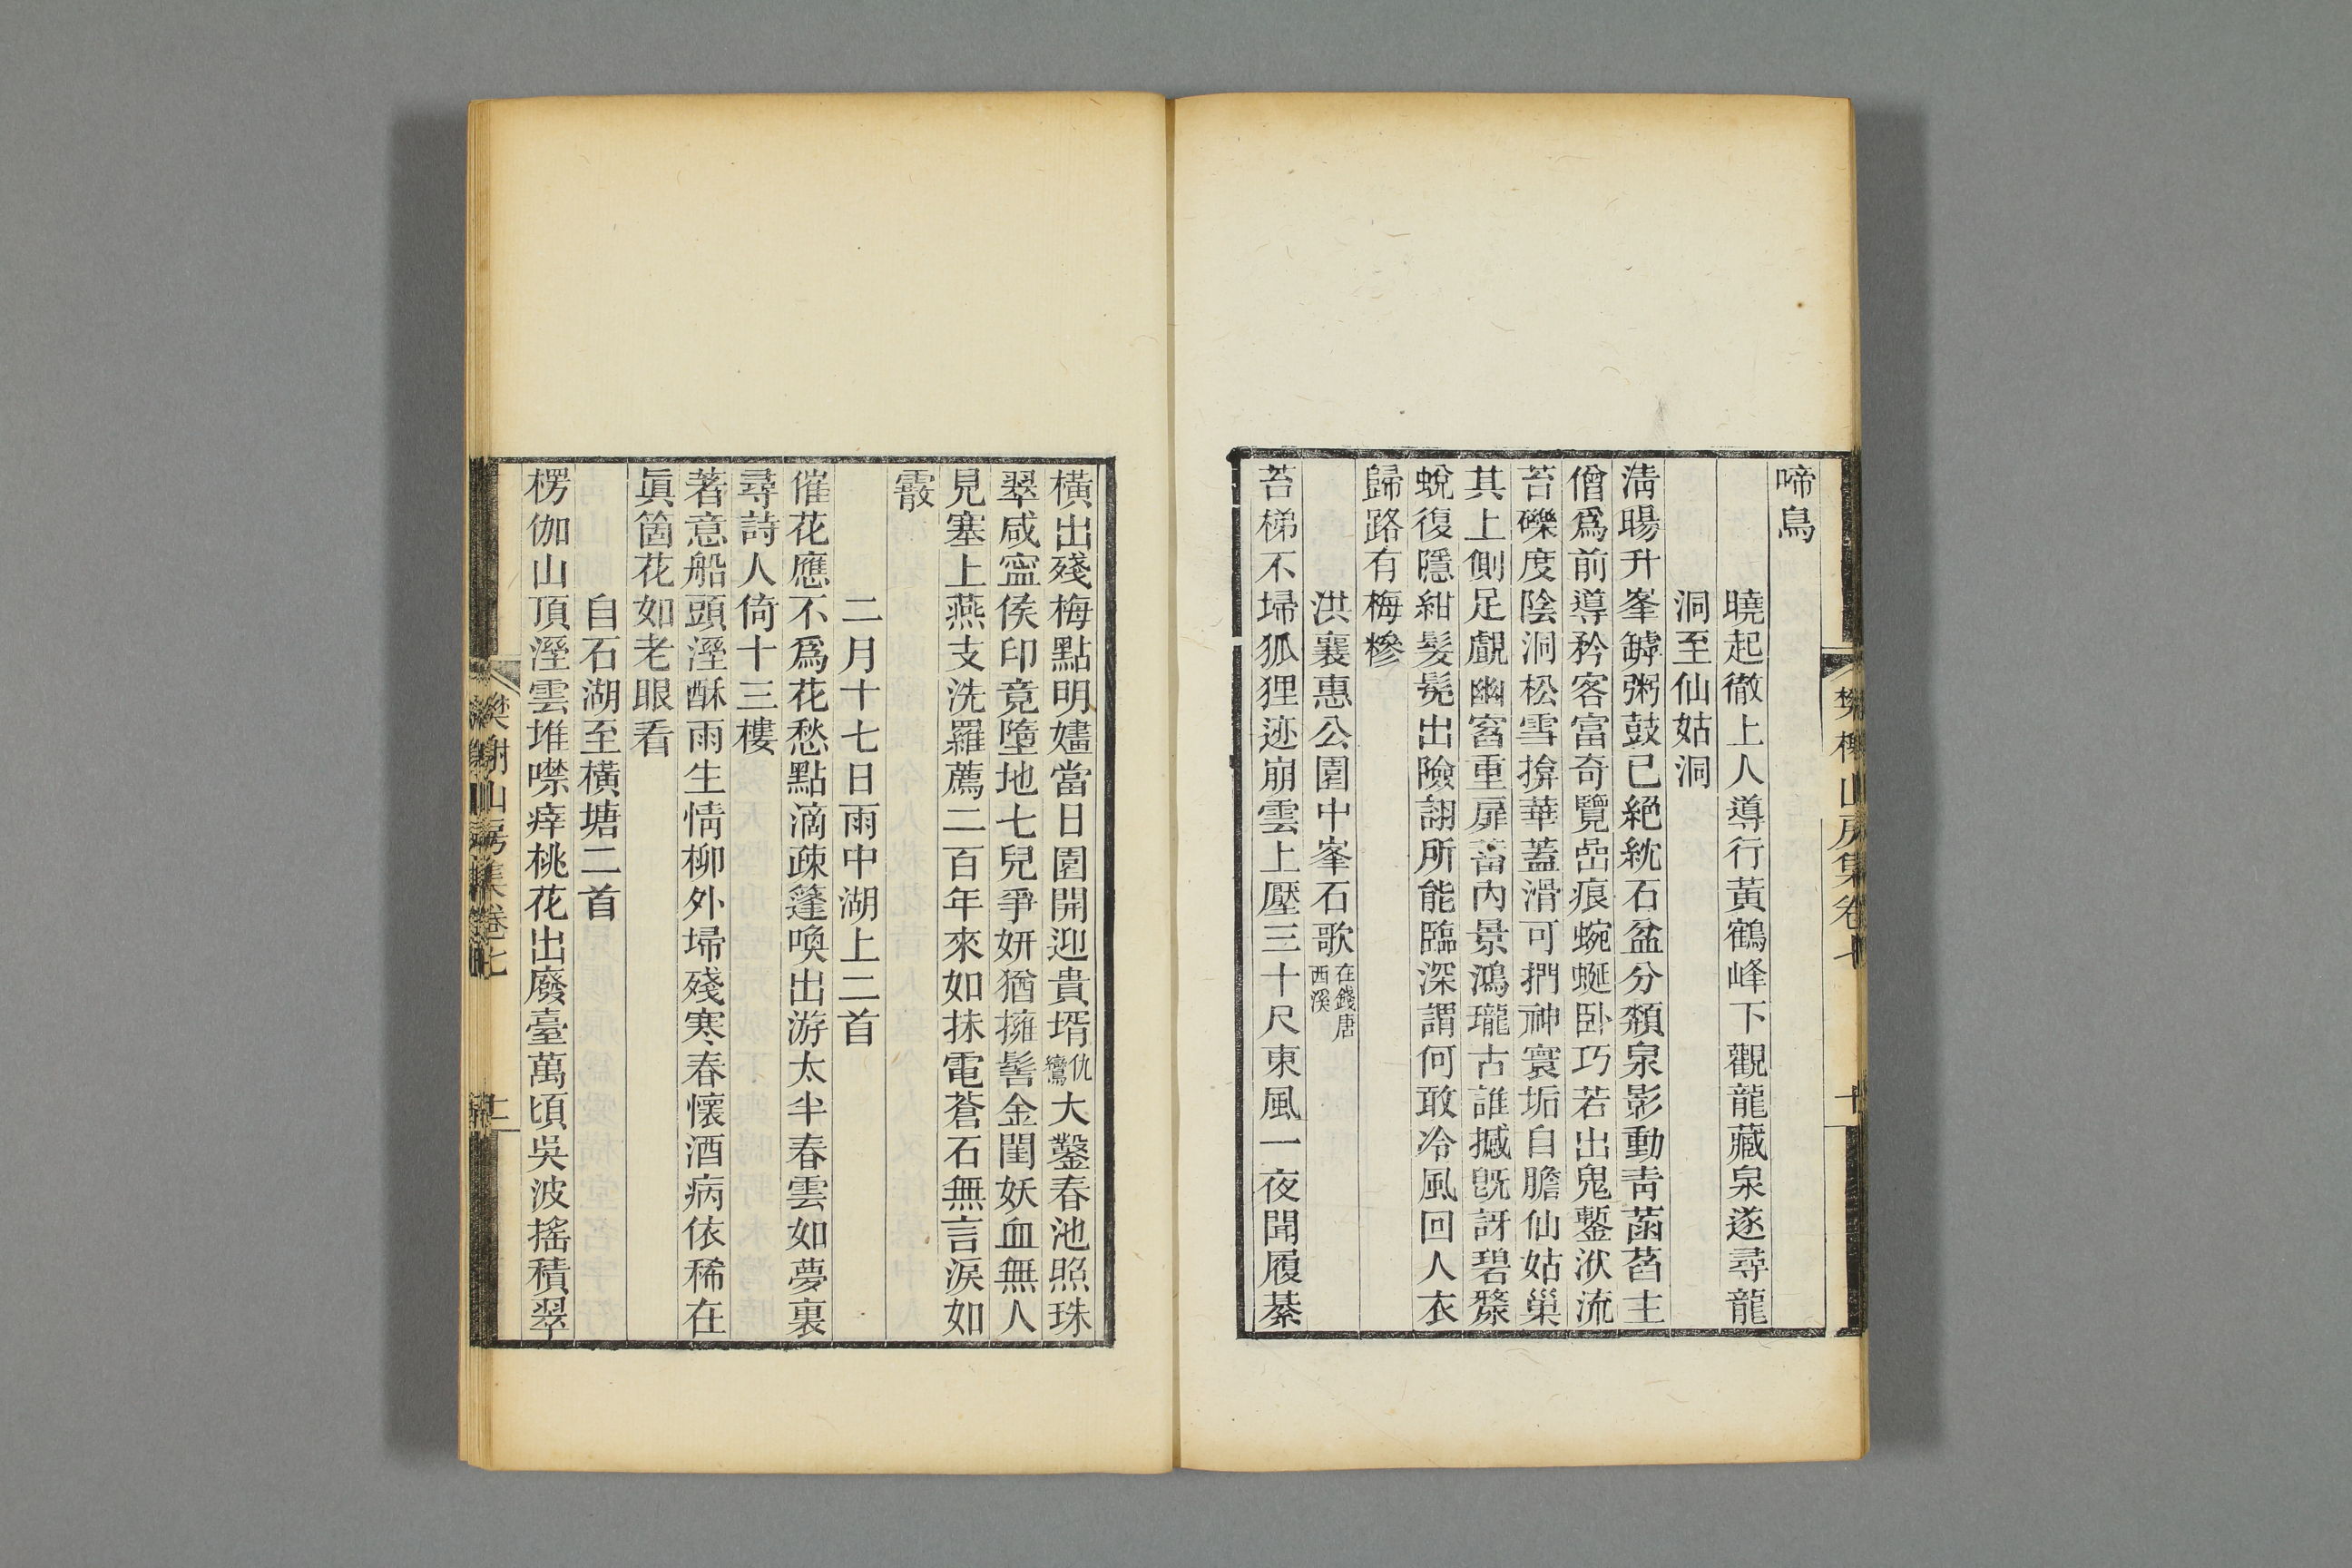 啼鳥
曉起徹上人導行黃鶴峰下觀龍藏泉遂尋龍
洞至仙姑洞
淸暘升峯罅粥鼓已絕紞石盆分纇泉影動靑菡萏主
僧爲前導矜客富奇覽嵒痕蜿蜒卧巧若出鬼鏨洑流
苔磔度陰洞松雪揜華蓋滑可捫神寰垢自膽仙姑巢
其上側足覰幽窞重扉葘內景鴻瓏古誰撼旣訝碧槮
蛻復隱紺髮髡出險詡所能臨深謂何敢冷風回人衣
歸路有梅糝
洪襄惠公園中峯石歌在錢唐西溪
苔梯不埽狐狸迹崩雲上壓三十尺東風一夜聞履綦
樊榭山房集卷七 十
橫出殘梅點明嫿當日園開迎貴壻仇鸞大鑿春池照珠
翠咸寍侯印竟墮地七兒爭妍猶擁髻金閨妖血無人
見塞上燕支洗羅薦二百年來如抹電蒼石無言淚如
霰
二月十七日雨中湖上二首
催花應不爲花愁點滴疎篷喚出游太半春雲如夢裏
尋詩人倚十三樓
著意船頭溼酥雨生情柳外埽殘寒春懷酒病依稀在
眞箇花如老眼看
自石湖至橫塘二首
楞伽山頂溼雲堆噤瘁桃花出廢臺萬頃吳波搖積翠
樊榭山房集卷七